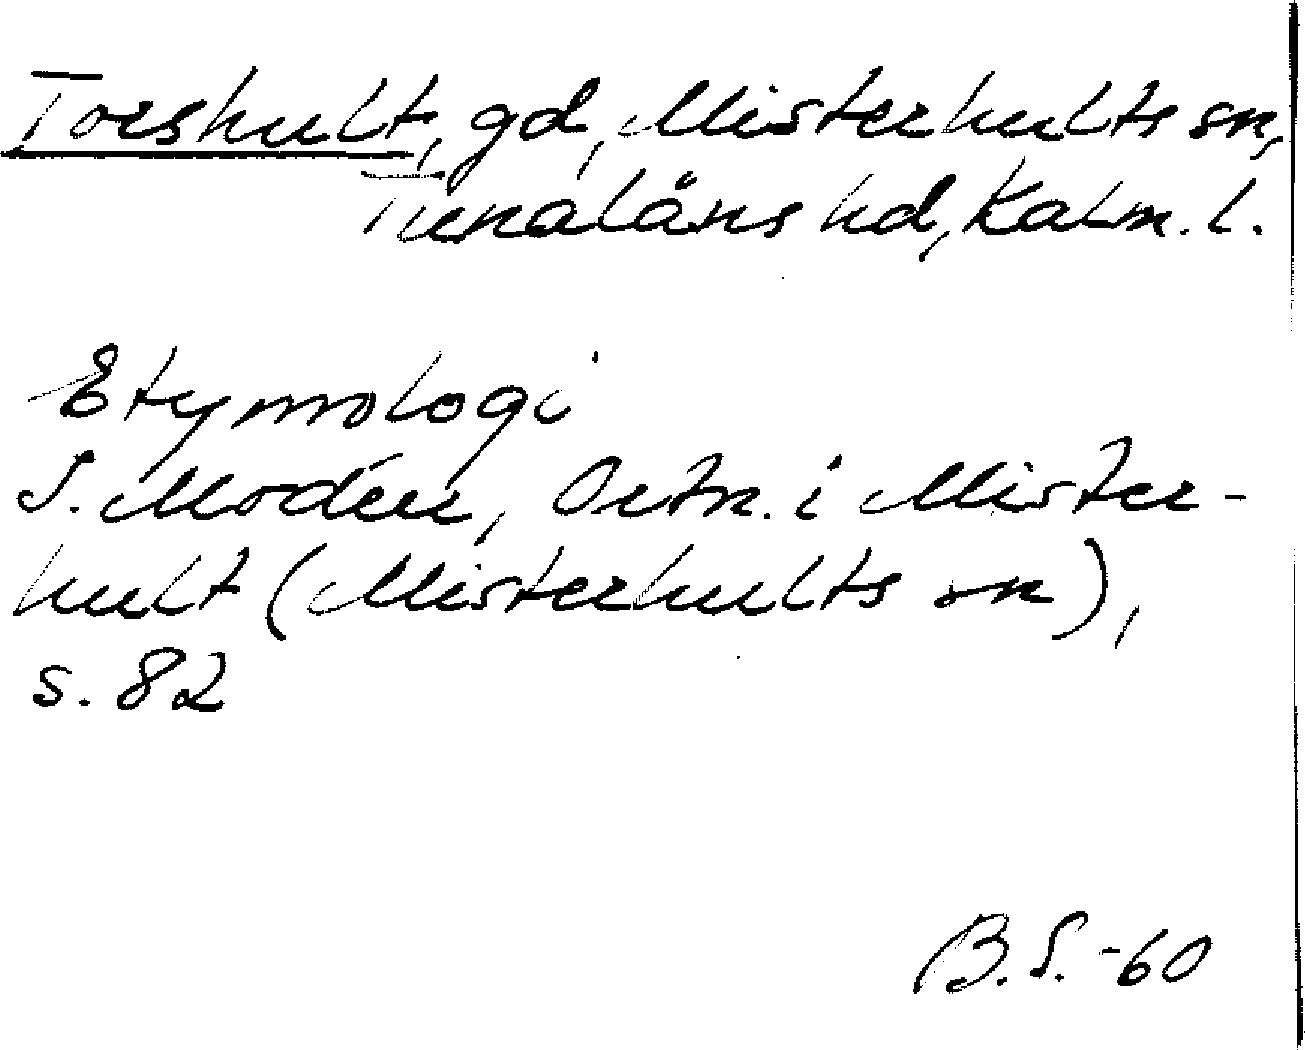 Torshult, gd, Misterhults sn,
Tunaläns hd, Kalm. l.
Etymologi
S. Modéer, Ortn. i Mister-
hult (Misterhults sn),
s. 82
B.S. -60